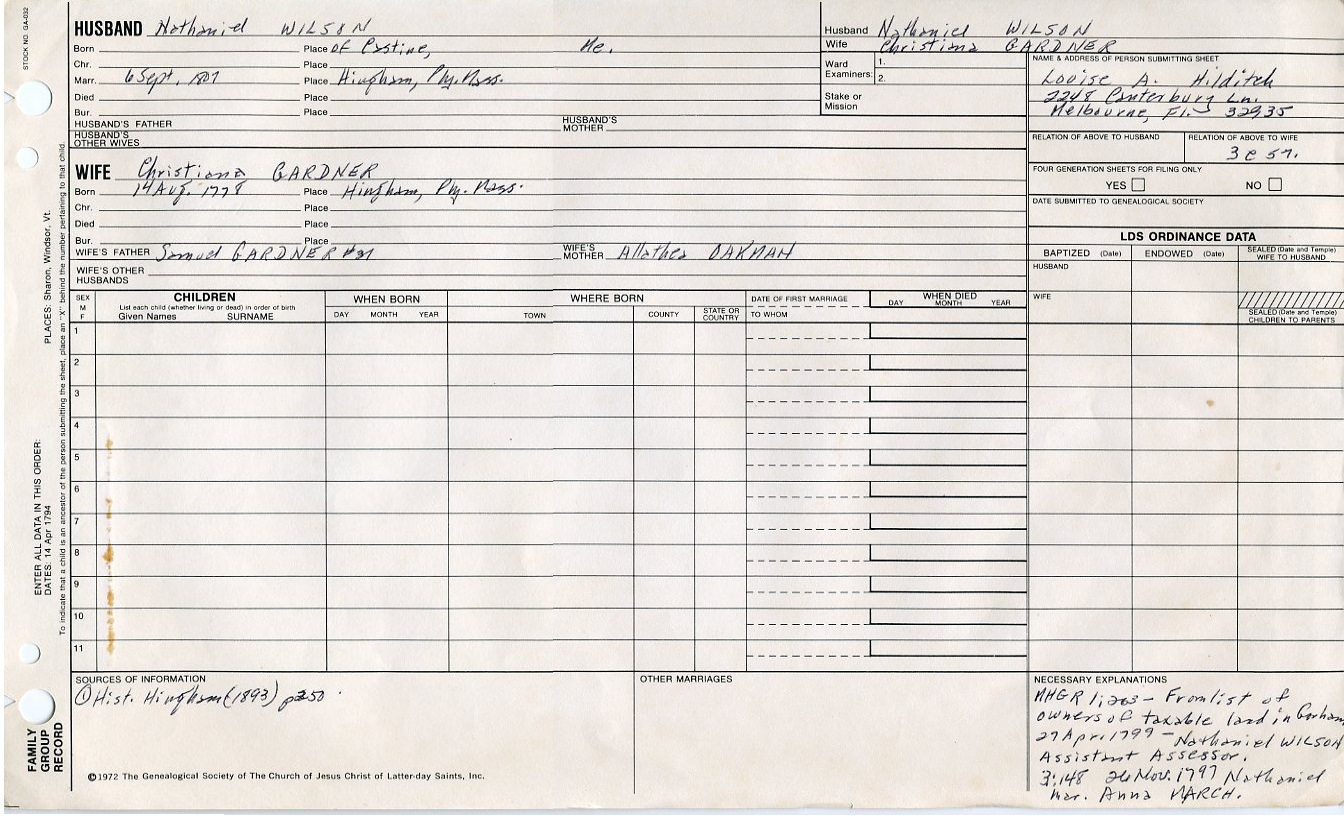 STOCK NO. GA-032
HUSBAND Nathaniel WILSON
Born Place of Castine, Me.
Chr. Place
Marr. 6 Sept, 1807 Place Hingham, Ply. Mass.
Died Place
Bur. Place
HUSBAND'S FATHER HUSBAND'S MOTHER
HUSBAND'S OTHER WIVES
WIFE Christiana GARDNER
Born 14 Aug. 1778 Place Hingham, Ply. Mass.
Chr. Place
Died Place
Bur. Place
WIFE'S FATHER Samuel GARDNER #31 WIFE'S MOTHER Allathea OAKMAN
WIFE'S OTHER HUSBANDS
Husband Nathaniel WILSON
Wife Christiana GARDNER
Ward Examiners: 1.
2.
Stake or Mission
NAME & ADDRESS OF PERSON SUBMITTING SHEET
Louise A. Hilditch
2248 Canterbury Ln.
Melbourne, Fl. 32935
RELATION OF ABOVE TO HUSBAND RELATION OF ABOVE TO WIFE
3c 5r.
FOUR GENERATION SHEETS FOR FILING ONLY
YES NO
DATE SUBMITTED TO GENEALOGICAL SOCIETY
LDS ORDINANCE DATA
BAPTIZED (Date) ENDOWED (Date) SEALED (Date and Temple) WIFE TO HUSBAND
HUSBAND
WIFE
SEALED (Date and Temple) CHILDREN TO PARENTS
SEX M F
CHILDREN
List each child (whether living or dead) in order of birth
Given Names SURNAME
WHEN BORN
DAY MONTH YEAR
WHERE BORN
TOWN COUNTY STATE OR COUNTRY
DATE OF FIRST MARRIAGE
TO WHOM
WHEN DIED
DAY MONTH YEAR
1
2
3
4
5
6
7
8
9
10
11
SOURCES OF INFORMATION
① Hist. Hingham (1893) p250
OTHER MARRIAGES
NECESSARY EXPLANATIONS
MHGR 1:203 - From list of
owners of taxable land in Gorham
27 Apr. 1799 - Nathaniel WILSON
Assistant Assessor.
3:148 26 Nov. 1797 Nathaniel
mar. Anna MARCH.
©1972 The Genealogical Society of The Church of Jesus Christ of Latter-day Saints, Inc.
FAMILY GROUP RECORD
ENTER ALL DATA IN THIS ORDER:
DATES: 14 Apr 1794
PLACES: Sharon, Windsor, Vt.
To indicate that a child is an ancestor of the person submitting the sheet, place an "X" behind the number pertaining to that child.